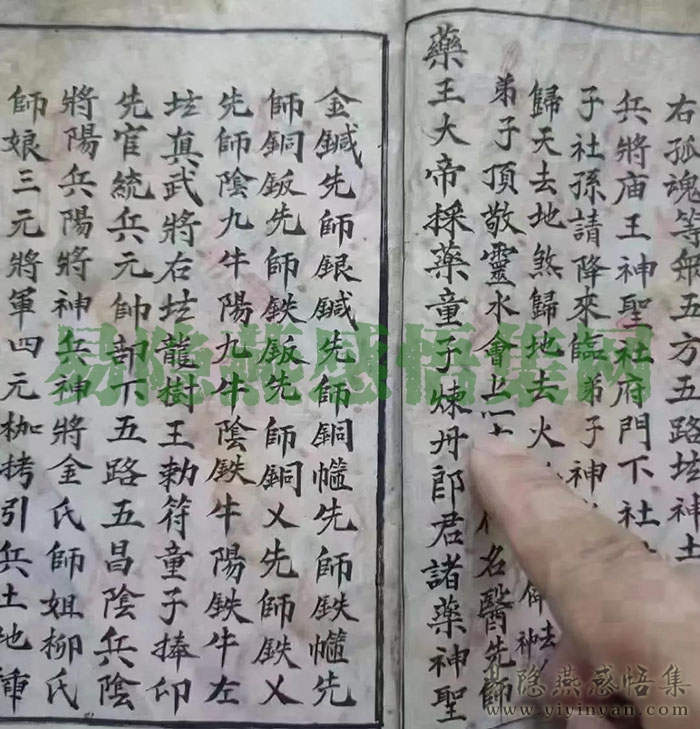 右孤魂等五方五路坛神土
兵將庙王神聖社府門下社
子社孫請降來臨弟子神
歸天去地煞歸地去火
弟子頂敬靈水會上名醫先師
藥王大帝採藥童子煉丹郎君諸藥神聖
金鍼先師銀鍼先師銅先師鉄先
師銅鈑先師鉄鈑先師銅乂先師鉄乂
先師陰九牛陽九牛陰鉄牛陽鉄牛左
坛真武將右坛龍樹王勅符童子捧印
先官統兵元帥部下五路五昌陰兵陰
將陽兵陽將神兵神將金氏師姐柳氏
師娘三元將軍四元枷拷引兵土地
易隐燕感悟集网
隐燕感悟集
www.yiyinyan.com